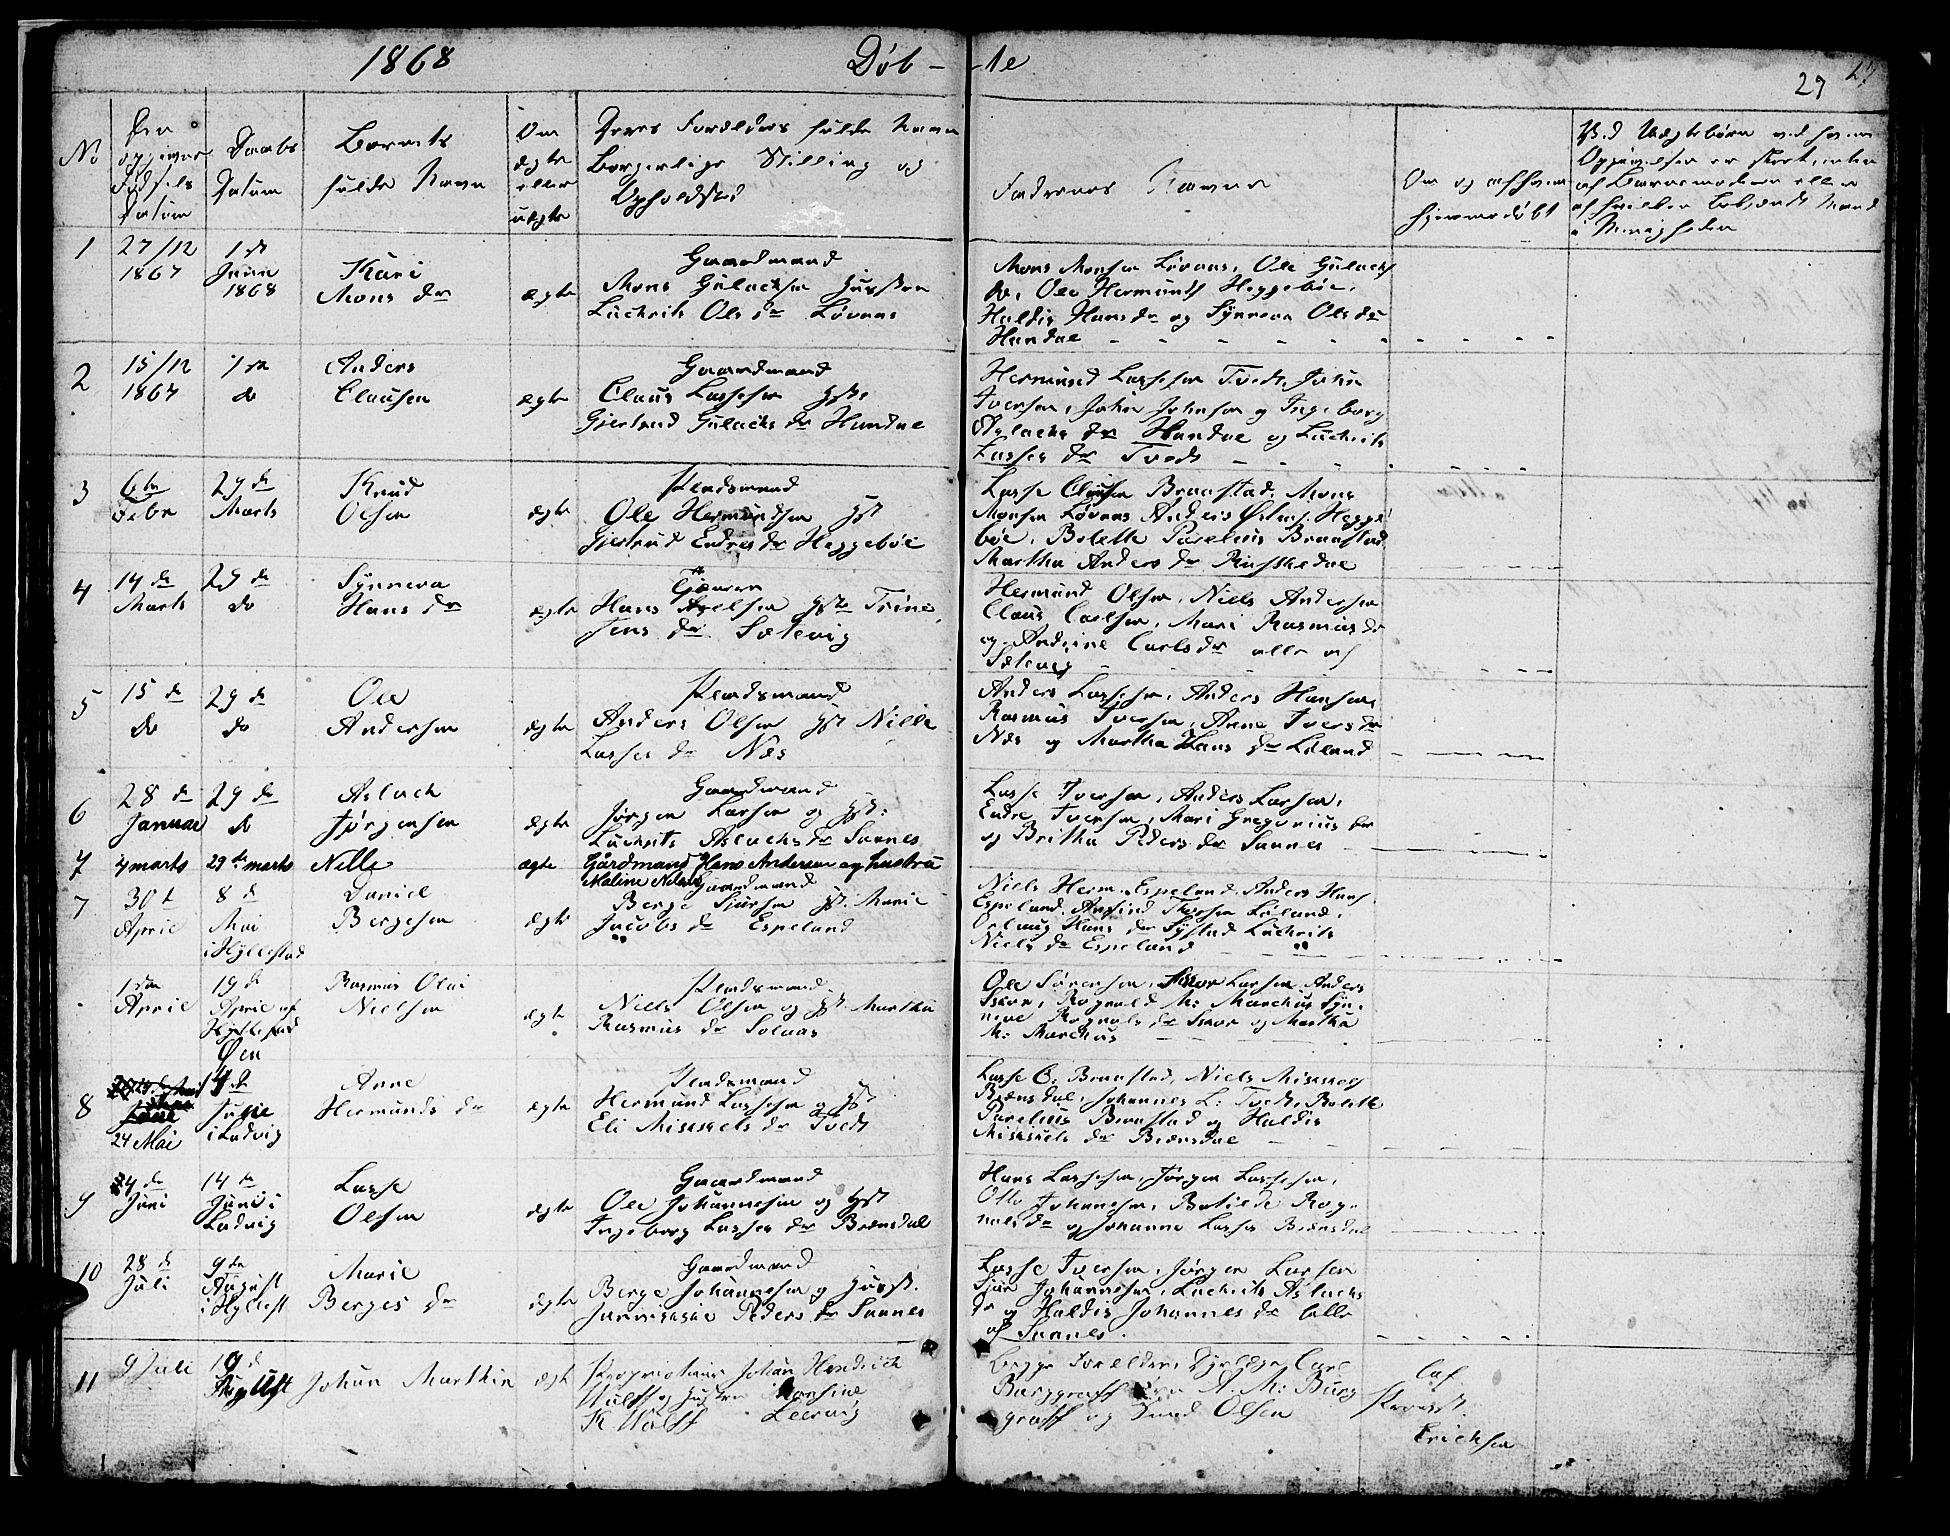 1868 Døb- -te
29
No
Den opgivne Fødsels Datum
Daabs Datum
Barnets fulde Navn
Om ægte eller uægte
Deres Forældres fulde Navn Borgerlige Stilling og Opholdsted
Faddernes Navne
Om og af hvem hjemmedøbt
Ved Uægtebørn ved hvem Opgivelsen er skeet, enten af Barnemoderen eller af hvilken bekjendt Mand i Menigheden
1
27/12 1867
1ste Janu 1868
Kari
Mons dr
ægte
Gaardmand
Mons Gulachsen Hustru
Lüchrits Ols dr Løvaas
Mons Monsen Løvaas, Ole Gulachs
Ole Hermunds Heggebøe,
Haldis Hans dr og Synneva Ols dr
Hundae
2
15/12 1867
1ste do
Anders
Clausen
ægte
Gaardmand
Claus Lassesen Hst.
Gjertrud Gulachs dr Hundae
Hermund Lassesen Tveds, John
Iversen, John Johnsen og Ingeborg
Aslachs dr Hundae og Lüchrits
Lasses dr Tveds
3
6te Febr
29de Marts
Knud
Olsen
ægte
Pladsmand
Ole Hermundsen Hst
Gjertrud Endres dr Heggebøe
Lasse Clausen Braastad, Mons
Monsen Løvaas Anders Heggebøe, Bolette Parelius Braastad
Martha Anders dr
4
14de Marts
29de do
Synneva
Hans dr
ægte
Tjener
Hans Axelsen Hst Trine
Jens dr Sætevig
Hermund Olsen, Niels Andersen
Claus Carlsen, Mari Rasmus dr
og Andrine Carls dr alle af
Sætevig
5
15de do
29de do
Ole
Andersen
ægte
Pladsmand
Anders Olsen Hst Nille
Lasses dr Næs
Anders Lassesen, Anders Hansen,
Rasmus Iversen, Anne Ivers dr
Næs og Martha Hans dr Leland
6
28de Januar
29de do
Aslach
Jørgensen
ægte
Gaardmand
Jørgen Larsen og Hst:
Lüchrits Aslachs dr Sannes
Lasse Iversen, Anders Larsen,
Endre Iversen, Mari Gregorius dr
og Britha Peders dr Sannes
7
4 marts
29de marts
Nille
ægte
Gårdmand Hans Andersen og hustru
Maline Nelsd
7
30te April
8de Mai i Hyllestad
Daniel
Bergesen
ægte
Gaardmand
Berge Sjursen Hst. Marie
Jacobs dr Espeland
Niels Herm. Espeland, Anders Hans
Espeland, Leland,
Hans dr Systad Lüchrits
Niels dr Espeland
1ste April
19de April af Hyllestad Øen
Rasmus Olai
Nielsen
ægte
Pladsmand
Niels Olsen og Hst Martha
Rasmus dr Solaas
Ole Sørensen, Larsen Anders
Rognald M: Marchus Syn-
neve Rognals dr og Martha
M: Marchus
8
24 Mai
14de Junie i Ladvig
Anne
Hermunds dr
ægte
Pladsmand
Hermund Lassesen og Hst
Eli Mikkels dr Tveds
Lasse C. Braastad, Niels Mikkels
Brænsdal, Johannes L: Tveds, Bolette
Parelius Braastad og Haldis
Mikkels dr Brænsdal
9
4de Juni
14de Juni i Ladvig
Lasse
Olsen
ægte
Gaardmand
Ole Johannesen og Hst
Ingeborg Lasses dr Brænsdal
Hans Lassesen, Jørgen Lassesen,
Otto Johannesen, Botilde Rog-
nals dr og Johanne Lasses Brænsdal
10
28de Juli
9de August i Hyllest
Marie
Berges dr
ægte
Gaardmand
Berge Johannesen og Hust.
Jannikkie Peders dr Sannes
Lasse Iversen, Jørgen Larsen
Sjur Johannesen, Lüchrits Aslachs
dr og Haldis Johannes dr alle
af Sannes.
11
9 Juli
19de August
Johan Marthin
ægt
Proprietair Johan Hendrich
Wulff og Hustru
K. Wulff Leervig
Begge Forældre, Carl
Burggraff A. M: Burg
graff og Knud Olsen
af
Erichsen